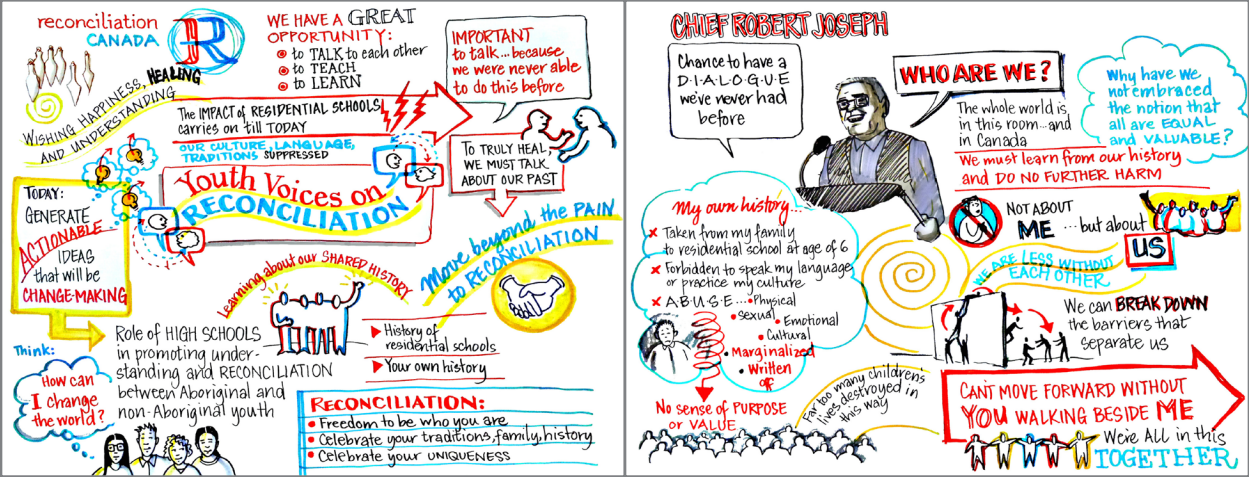 reconciliation
CANADA
R
WISHING HAPPINESS, HEALING
AND UNDERSTANDING
WE HAVE A GREAT
OPPORTUNITY:
to TALK to each other
to TEACH
to LEARN
IMPORTANT
to talk... because
we were never able
to do this before
The IMPACT of RESIDENTIAL SCHOOLS
carries on till TODAY
OUR CULTURE, LANGUAGE,
TRADITIONS SUPPRESSED
TO TRULY HEAL
WE MUST TALK
ABOUT OUR PAST
Youth Voices on
RECONCILIATION
TODAY:
GENERATE
ACTIONABLE
IDEAS
that will be
CHANGE-MAKING
Move beyond the PAIN
to RECONCILIATION
Learning about our SHARED HISTORY
History of
residential schools
Your own history
Role of HIGH SCHOOLS
in promoting under-
standing and RECONCILIATION
between Aboriginal and
non-Aboriginal youth
Think:
How can
I change
the world?
RECONCILIATION:
• Freedom to be who you are
• Celebrate your traditions, family, history
• Celebrate your UNIQUENESS
CHIEF ROBERT JOSEPH
Chance to have a
D-I-A-L-O-G-U-E
we've never had
before
WHO ARE WE?
The whole world is
in this room...and
in Canada
Why have we
not embraced
the notion that
all are EQUAL
and VALUABLE?
We must learn from our history
and DO NO FURTHER HARM
My own history...
x Taken from my family
to residential school at age of 6
x Forbidden to speak my language
or practice my culture
x A-B-U-S-E... • Physical
• sexual
• Emotional
• Cultural
• Marginalized
• Written
off
No sense of PURPOSE
or VALUE
Far too many children's
lives destroyed in
this way
NOT ABOUT
ME ...but about
US
WE ARE LESS WITHOUT
EACH OTHER
We can BREAK DOWN
the barriers that
separate us
CAN'T MOVE FORWARD WITHOUT
YOU WALKING BESIDE ME
We're ALL in this
TOGETHER